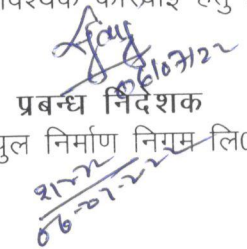 कार्रवाई हेतु
06/07/22
प्रबन्ध निदेशक
पुल निर्माण निगम लि०
06-07-22